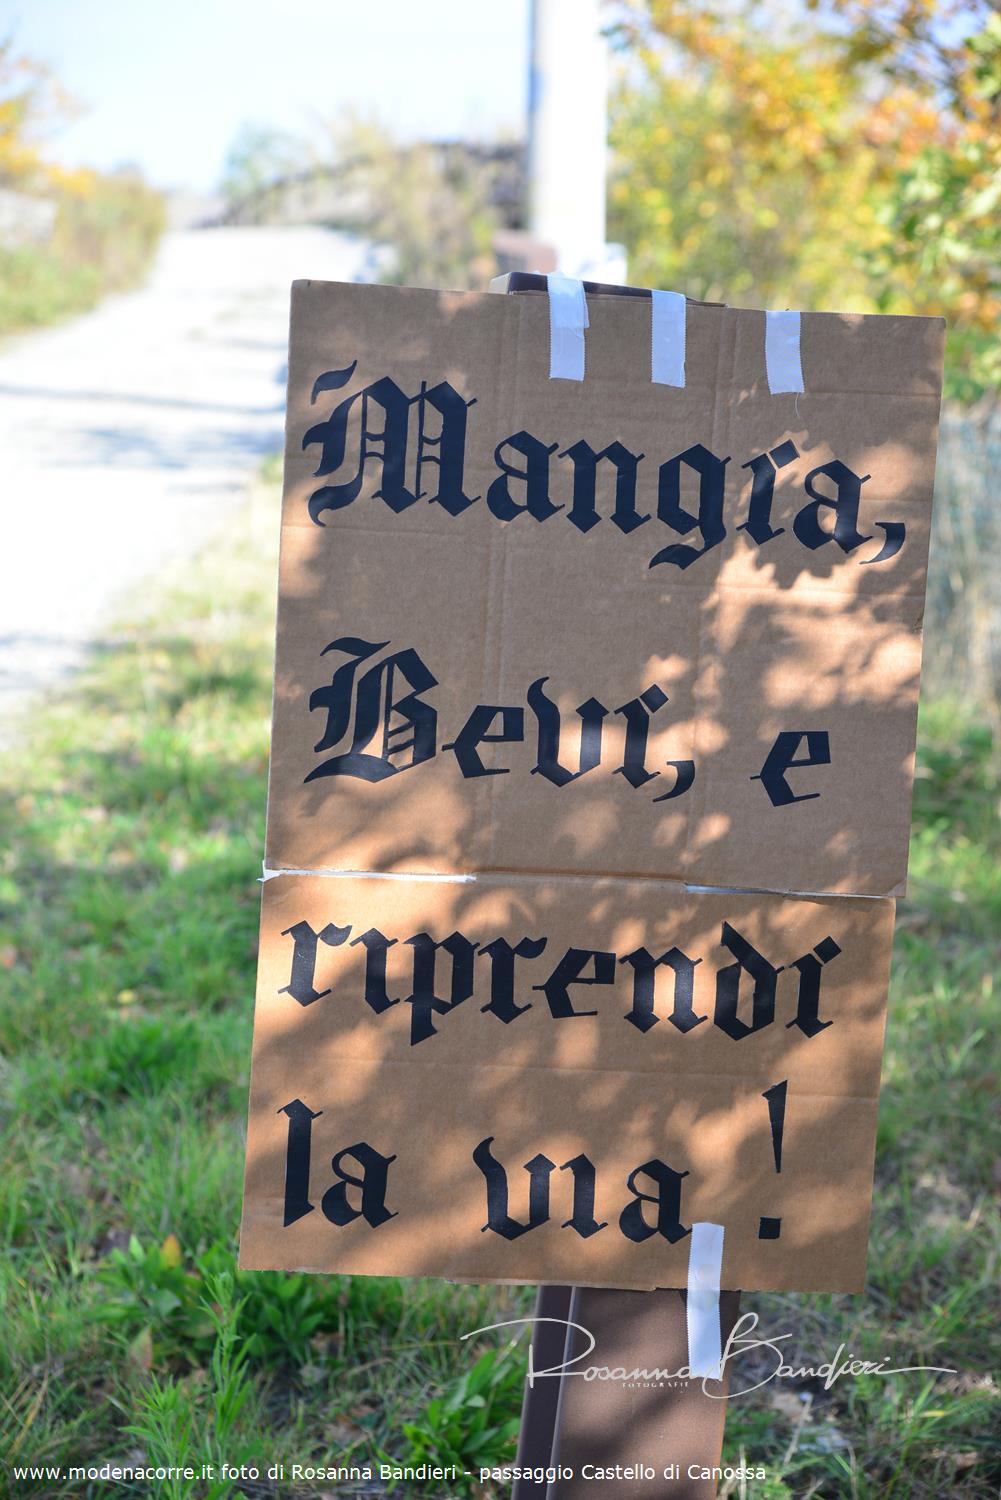 Mangia,
Bevi, e
riprendi
la via !
Rosanna Bandieri
FOTOGRAFIE
www.modenacorre.it foto di Rosanna Bandieri - passaggio Castello di Canossa